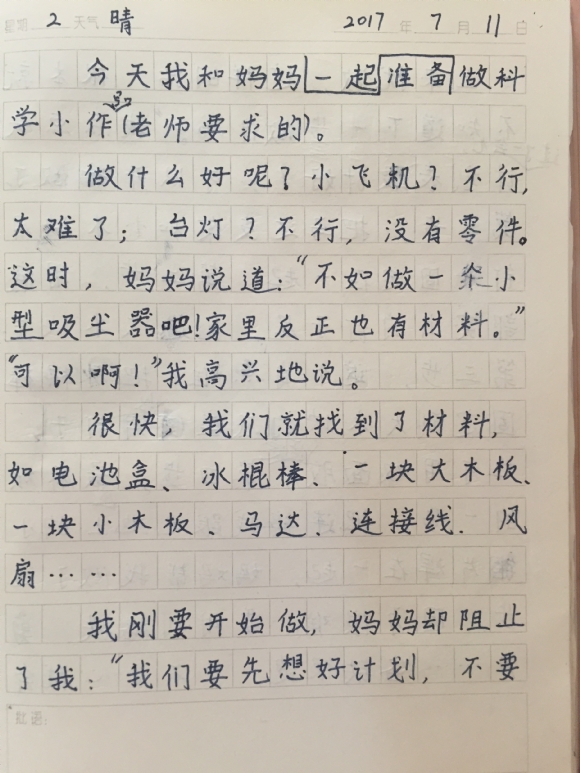 星期 2 天气 晴 2017 年 7 月 11 日
今天我和妈妈一起准备做科
学小作(老师要求的)。
做什么好呢？小飞机？不行,
太难了；台灯？不行，没有零件。
这时，妈妈说道：“不如做一个小
型吸尘器吧！家里反正也有材料。”
“可以啊！”我高兴地说。
很快，我们就找到了材料,
如电池盒、冰棍棒、一块大木板、
一块小木板、马达、连接线、风
扇……
我刚要开始做，妈妈却阻止
了我：“我们要先想好计划，不要
批语: